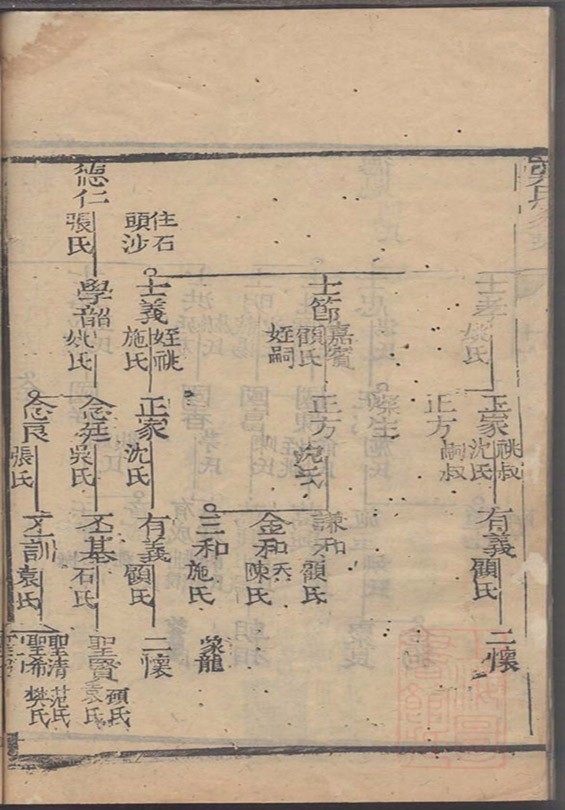 士孝
姚氏
正家
祧叔
沈氏
有義
顧氏
二懷
正方
嗣叔
士節
嘉賓
顧氏
姪嗣
正方
沈氏
謙和
顧氏
金和
陳氏
三和
施氏
蒙龍
住石
頭沙
士義
姪祧
施氏
正家
沈氏
有義
顧氏
二懷
德仁
張氏
學韶
姚氏
念廷
吳氏
丕基
石氏
聖賢
顧氏
袁氏
念良
張氏
丕訓
袁氏
聖清
范氏
聖希
樊氏